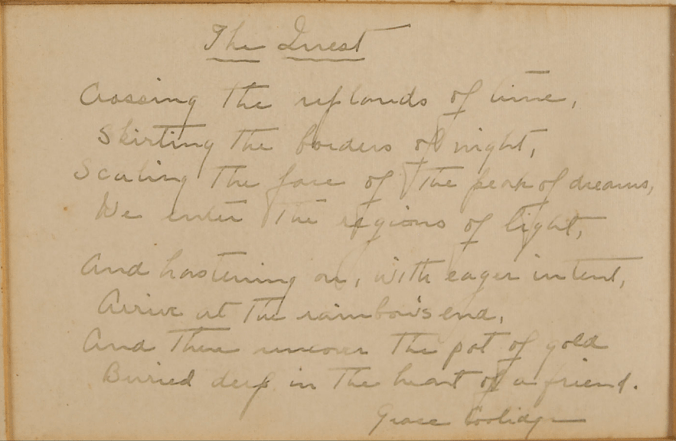 The Quest
Crossing the uplands of time,
Skirting the borders of night,
Scaling the face of the peak of dreams,
We enter the regions of light,
And hastening on, with eager intent,
Arrive at the rainbow's end,
And there uncover the pot of gold
Buried deep in the heart of a friend.
Grace Coolidge